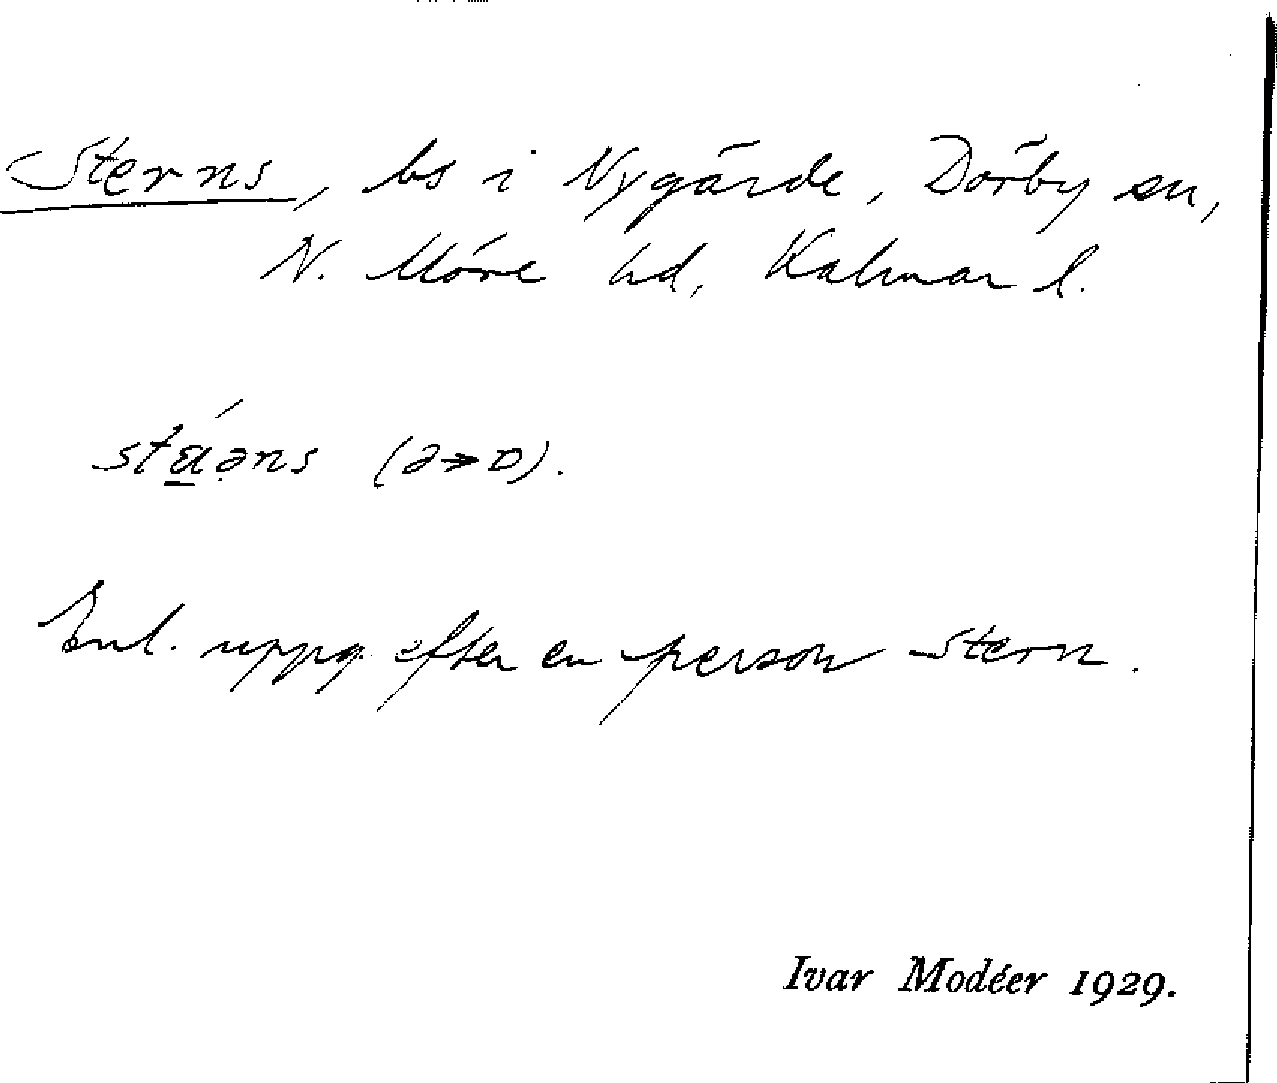 Sterns, bs i Nygärde, Dörby sn,
N. Möre hd, Kalmar l.
(ə→ɒ).
Enl. uppg. efter en person Stern.
Ivar Modéer 1929.